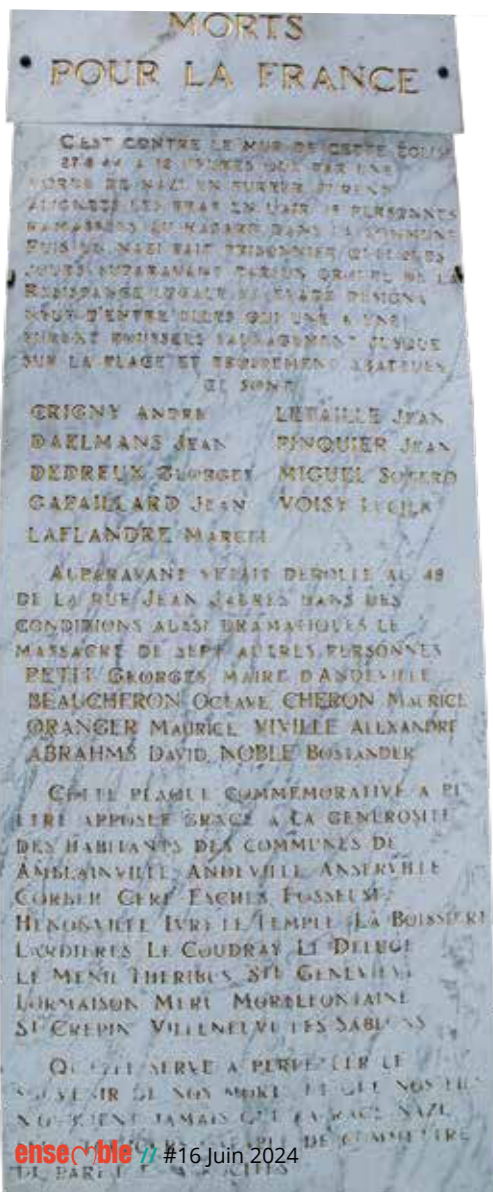 MORTS
POUR LA FRANCE
C'EST CONTRE LE MUR DE CETTE EGLISE
27 8 44 A 18 HEURES QUE PAR UNE
HORDE DE NAZI EN FUREUR FURENT
ALIGNEES LES BRAS EN L'AIR PERSONNES
RAMASSEES AU HASARD DANS LA COMMUNE
PUIS UN NAZI FAIT PRISONNIER QUELQUES
JOURS AUPARAVANT PAR UN GROUPE DE LA
RESISTANCE LOCALE DESIGNA
NEUF D'ENTRE ELLES QUI UNE A UNE
FURENT POUSSEES SAUVAGEMENT JUSQUE
SUR LA PLACE ET ABATTUES
CE SONT
CRIGNY ANDRE LETAILLE JEAN
DAELMANS JEAN PINQUIER JEAN
DEDREUX GEORGES MIGUEL
GAFAILLARD JEAN VOISY LUCIEN
LAFLANDRE MARCEL
AUPARAVANT S'ETAIT DEROULE AU 48
DE LA RUE JEAN JAURES DANS DES
CONDITIONS AUSSI DRAMATIQUES LE
MASSACRE DE SEPT AUTRES PERSONNES
PETIT GEORGES, MAIRE D'ANDEVILLE
BEAUCHERON OCTAVE, CHERON MAURICE
ORANGER MAURICE, VIVILLE ALEXANDRE
ABRAHMS DAVID, NOBLE BOSTANDER
CETTE PLAQUE COMMEMORATIVE A PU
ETRE APPOSEE GRACE A LA GENEROSITE
DES HABITANTS DES COMMUNES DE
AMBLAINVILLE ANDEVILLE ANSERVILLE
CORBEIL CERF ESCHES FOSSEUSE
HENONVILLE IVRY LE TEMPLE LA BOISSIERE
LARDIERES LE COUDRAY LE DELUGE
LE MENIL THERIBUS STE GENEVIEVE
LORMAISON MERU MORTEFONTAINE
ST CREPIN VILLENEUVE LES SABLONS
QU'ELLE SERVE A PERPETUER LE
SOUVENIR DE NOS MORTS ET QUE NOS FILS
N'OUBLIENT JAMAIS QUE LA RACE NAZIE
DE COMMETTRE
DE PAREILLES ATROCITES
ensemble // #16 Juin 2024